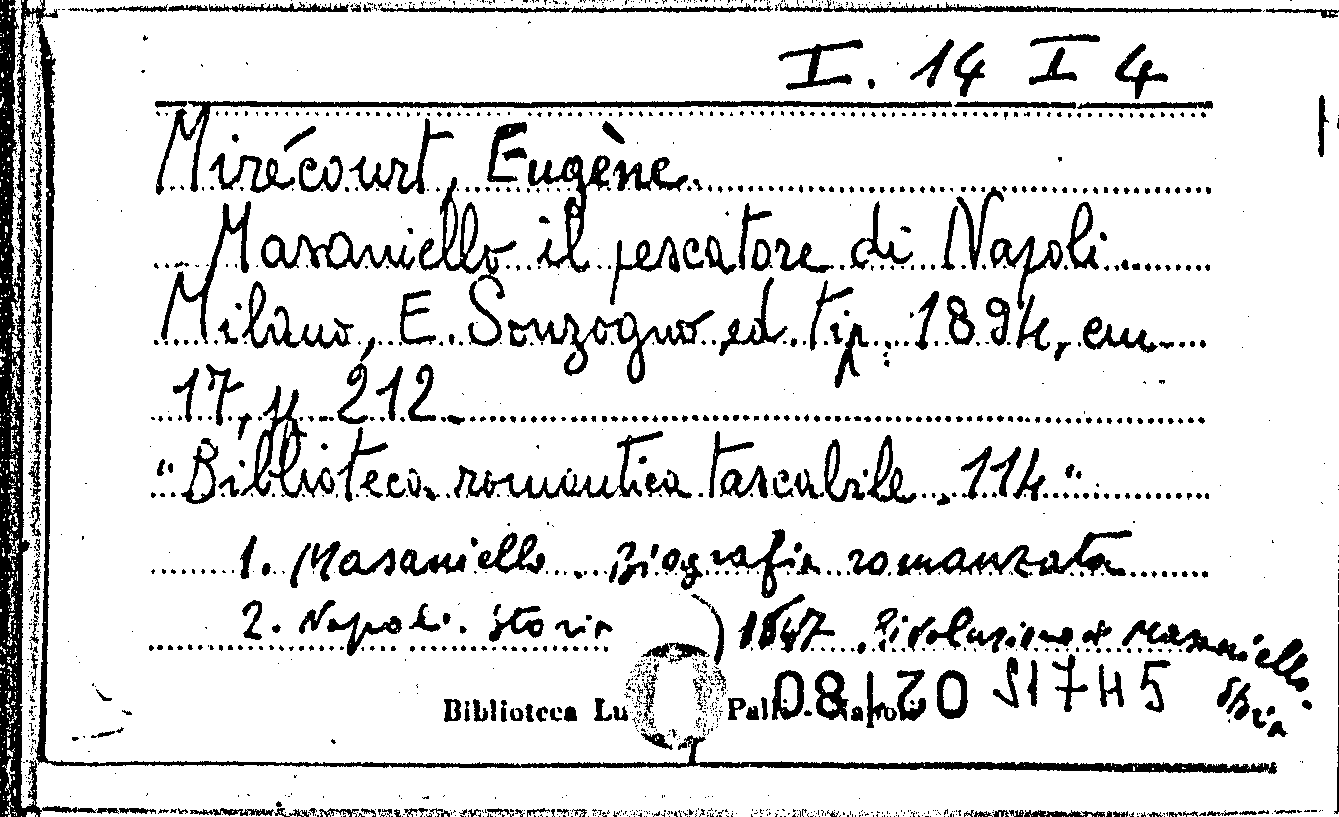 I. 14 I 4
Mirécourt, Eugène.
Masaniello il pescatore di Napoli.
Milano, E. Sonzogno, ed. tip. 1894, cm
17, p. 212.
"Biblioteca romantica tascabile. 114"
1. Masaniello. Biografia romanzata
2. Napoli. Storia 1647. Rivoluzione di Masaniello.
Storia
Biblioteca Lu Pal Napoli 08/20 S1745